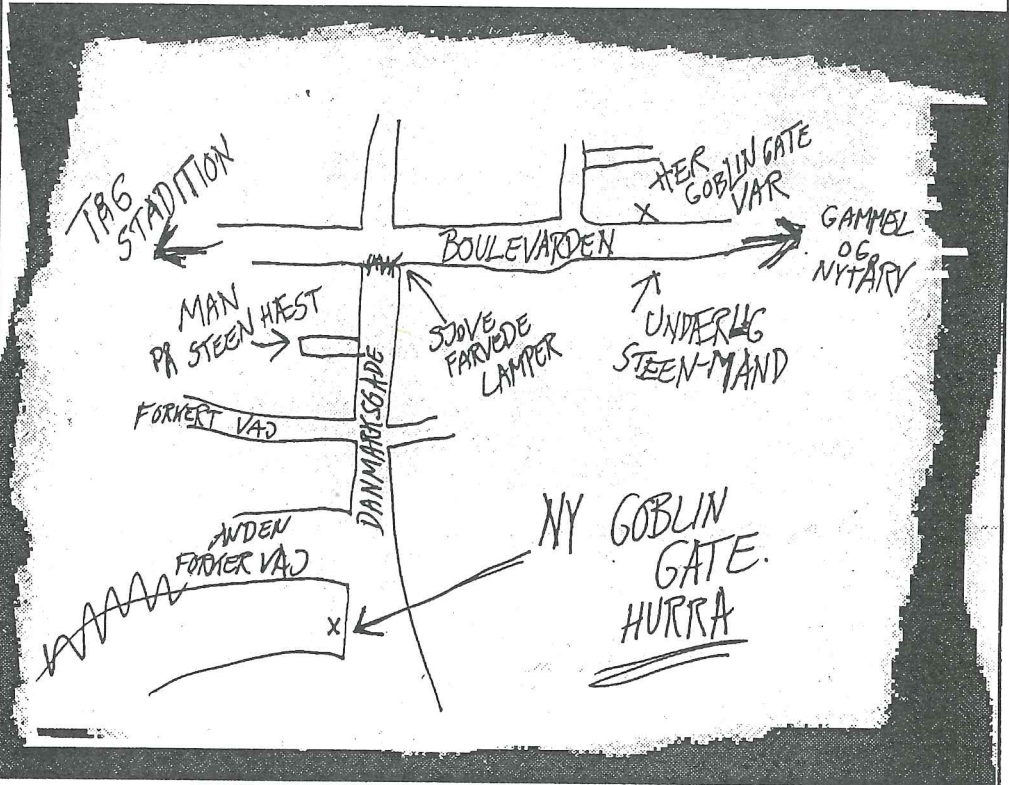 TAG
STADITION
HER
GOBLIN GATE
VAR
BOULEVARDEN
GAMMEL
OG
NYTÅRV
MAN
PÅ STEEN HÆST
SJOVE
FARVEDE
LAMPER
UNDÆRLIG
STEEN-MAND
FORKERT VAJ
DANMARKSGADE
ANDEN
FORKER VAJ
NY GOBLIN
GATE.
HURRA
X
X